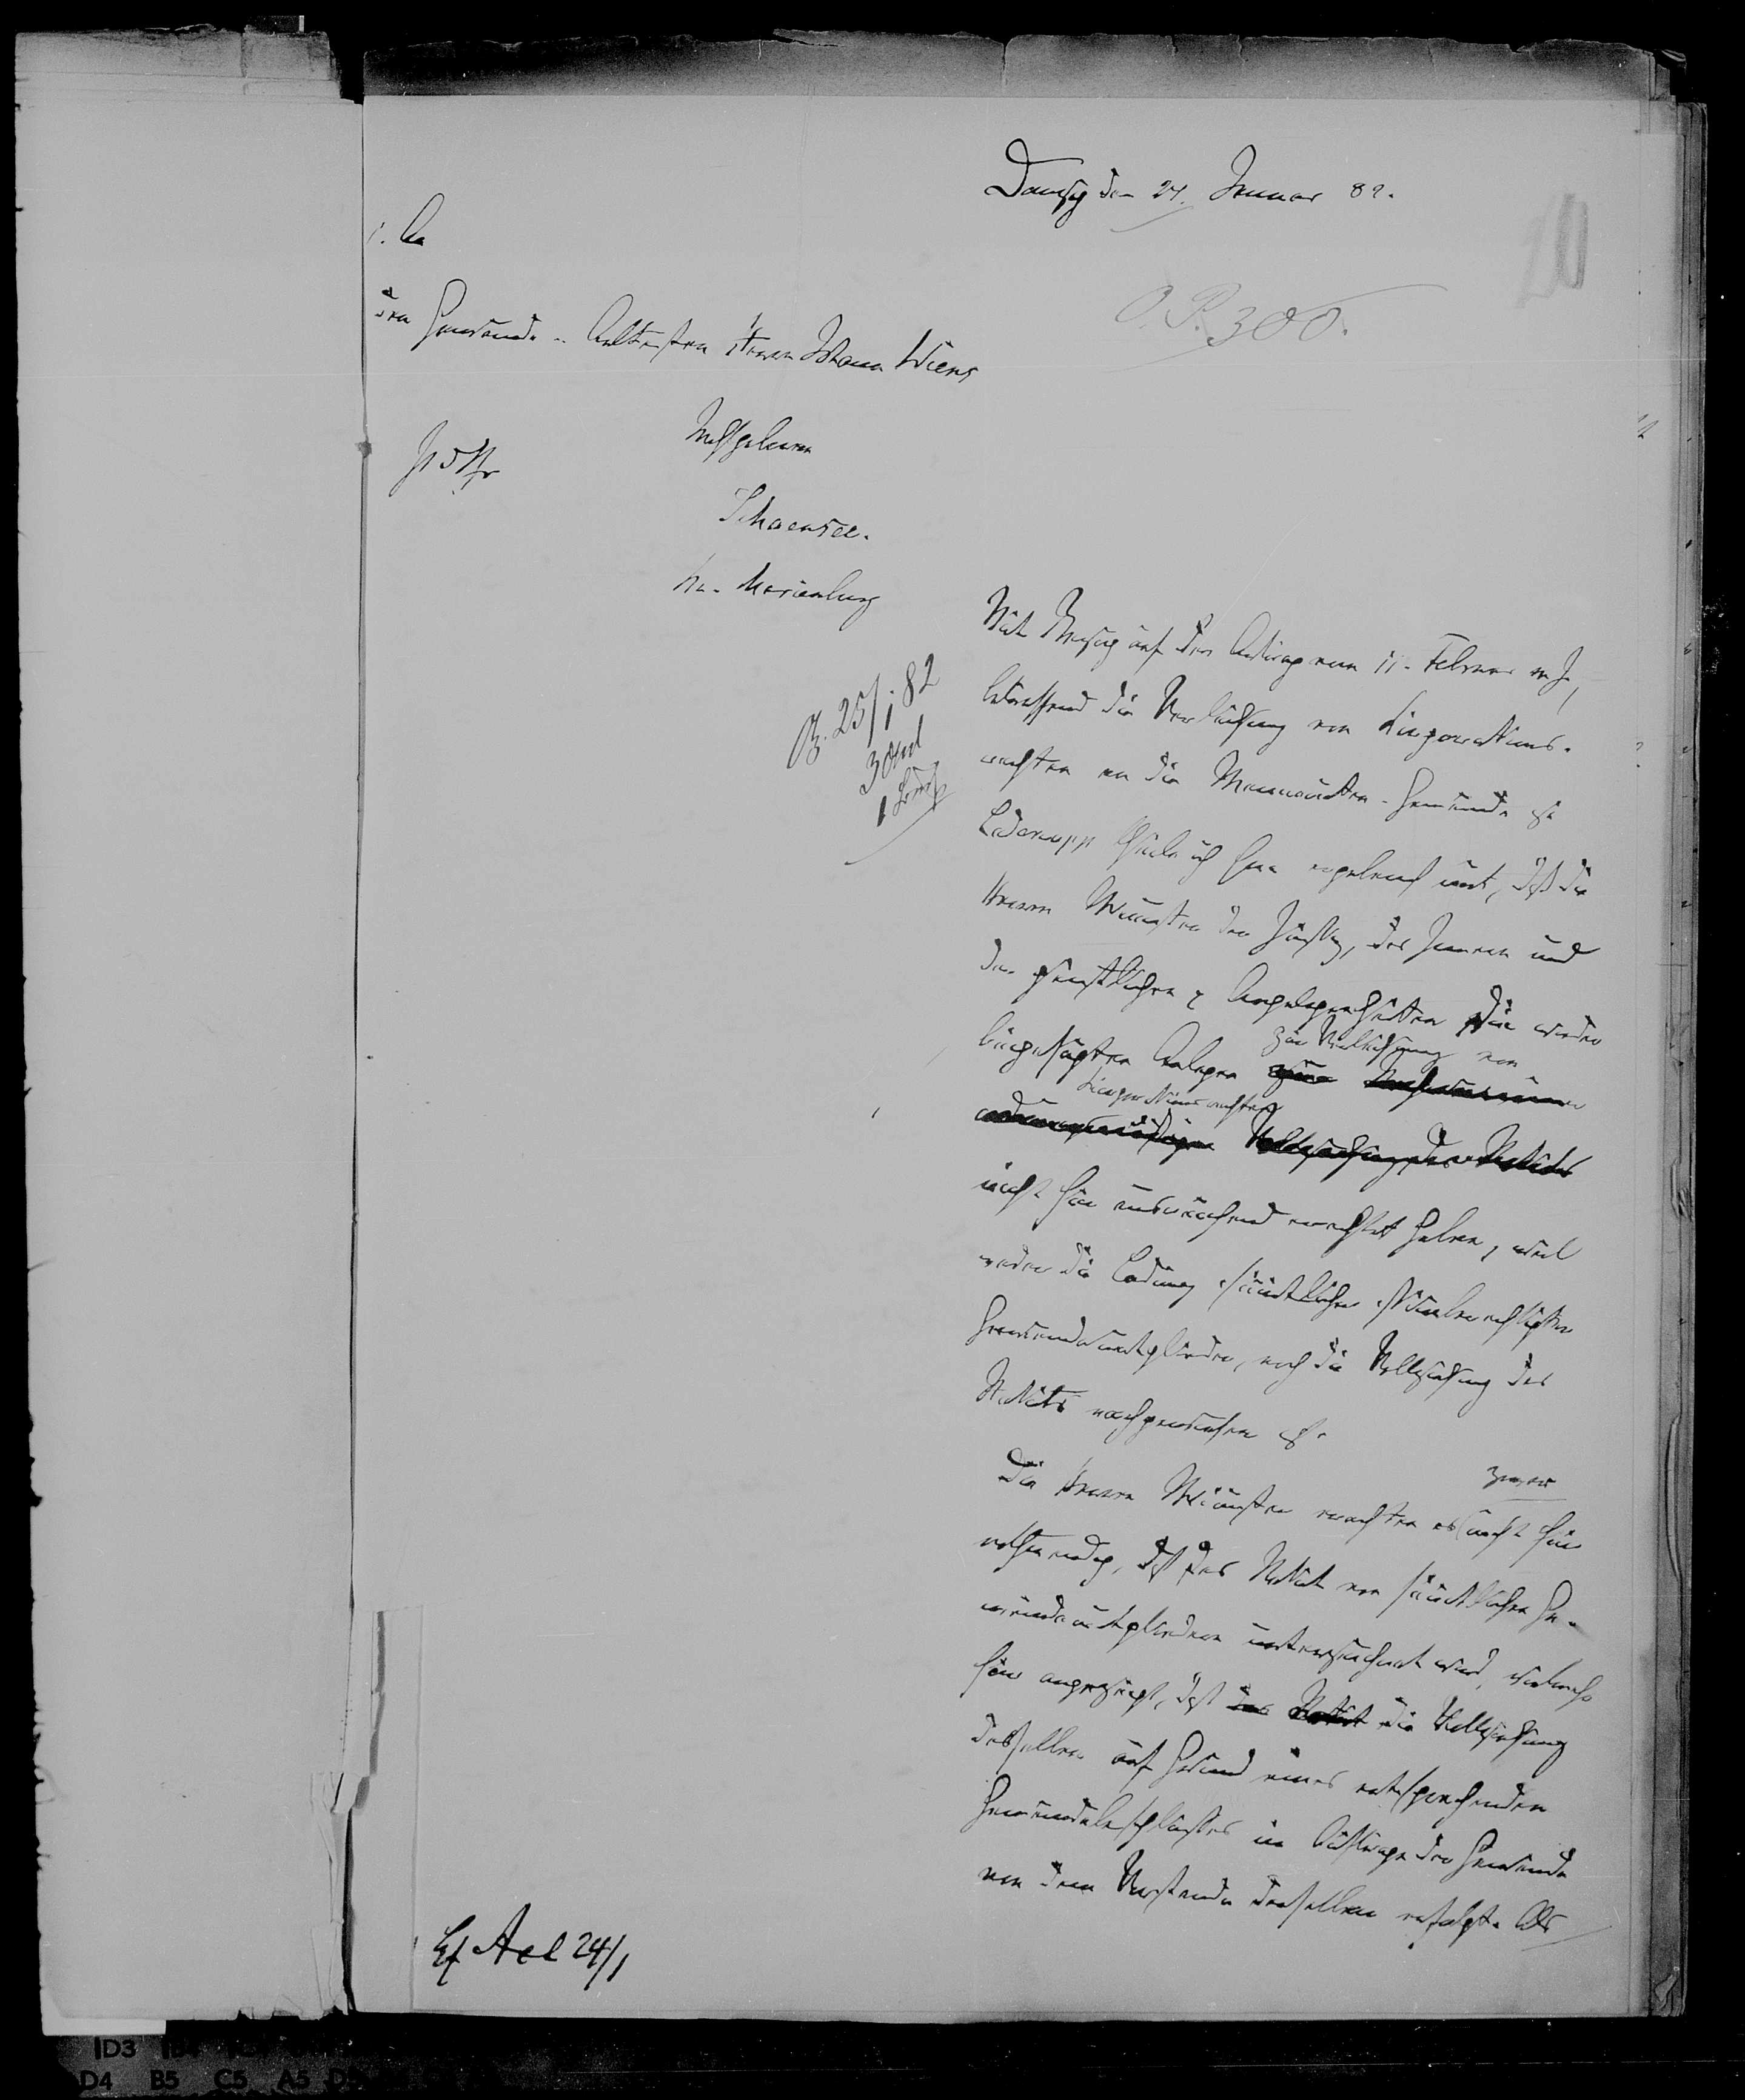 Danzig den 24. Januar 82.
20
O. P. 300.
1. An
den Gemeinde-Aeltesten Herrn Johann Wiens
Wohlgeboren
Schoensee.
Kr. Marienburg
Z. 25/1. 82
1
Mit Bezug auf den Antrag vom 11. Februar v. J.,
betreffend die Verleihung von Korporations-
rechten an die Mennoniten-Gemeinde zu
Ladekopp theile ich Ihnen ergebenst mit, daß die
Herren Minister der Justiz, des Innern und
der geistlichen p Angelegenheiten die wieder
beigefügten Anlagen zur Verleihung von
Korporationsrechten
nicht für ausreichend erachtet haben, weil
weder die Ladung sämmtlicher stimmberechtigten
Gemeindemitglieder, noch die Vollziehung des
Statuts nachgewiesen ist.
Die Herren Minister erachten es zwar nicht für
nothwendig, daß das Statut von sämmtlichen Ge-
meindemitgliedern unterzeichnet wird, vielmehr
für angezeigt, daß das Statut die Vollziehung
desselben auf Grund eines entsprechenden
Gemeindebeschlusses im Auftrage der Gemeinde
von dem Vorstande derselben erfolgt. Als
24/1